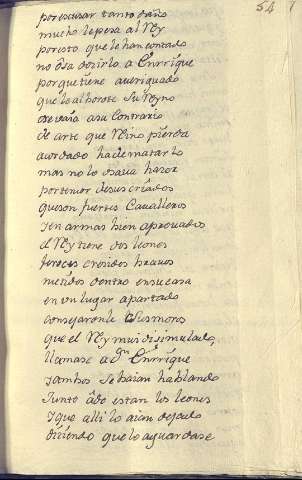 54
por escusar tanto daño
mucho le pesa al Rey
por esto que le han contado
no osa dezirlo a Enrrique
porque tiene averiguado
que lo alborote su Reyno
a su Contrario
de arte que Reino pierda
acordado ha de matarlo
mas no lo osava hazer
por temor de sus criados
que son fuertes Cavalleros
y en armas bien aprovados
el Rey tiene dos leones
feroces cresidos bravos
metidos dentro en su casa
en un lugar apartado
consejaronle los moros
que el Rey muy disimulado
llamase a dn Enrrique
y ambos se baian hablando
Junto ado estan los leones
y que alli lo aian dejado
diciendo que lo aguardase